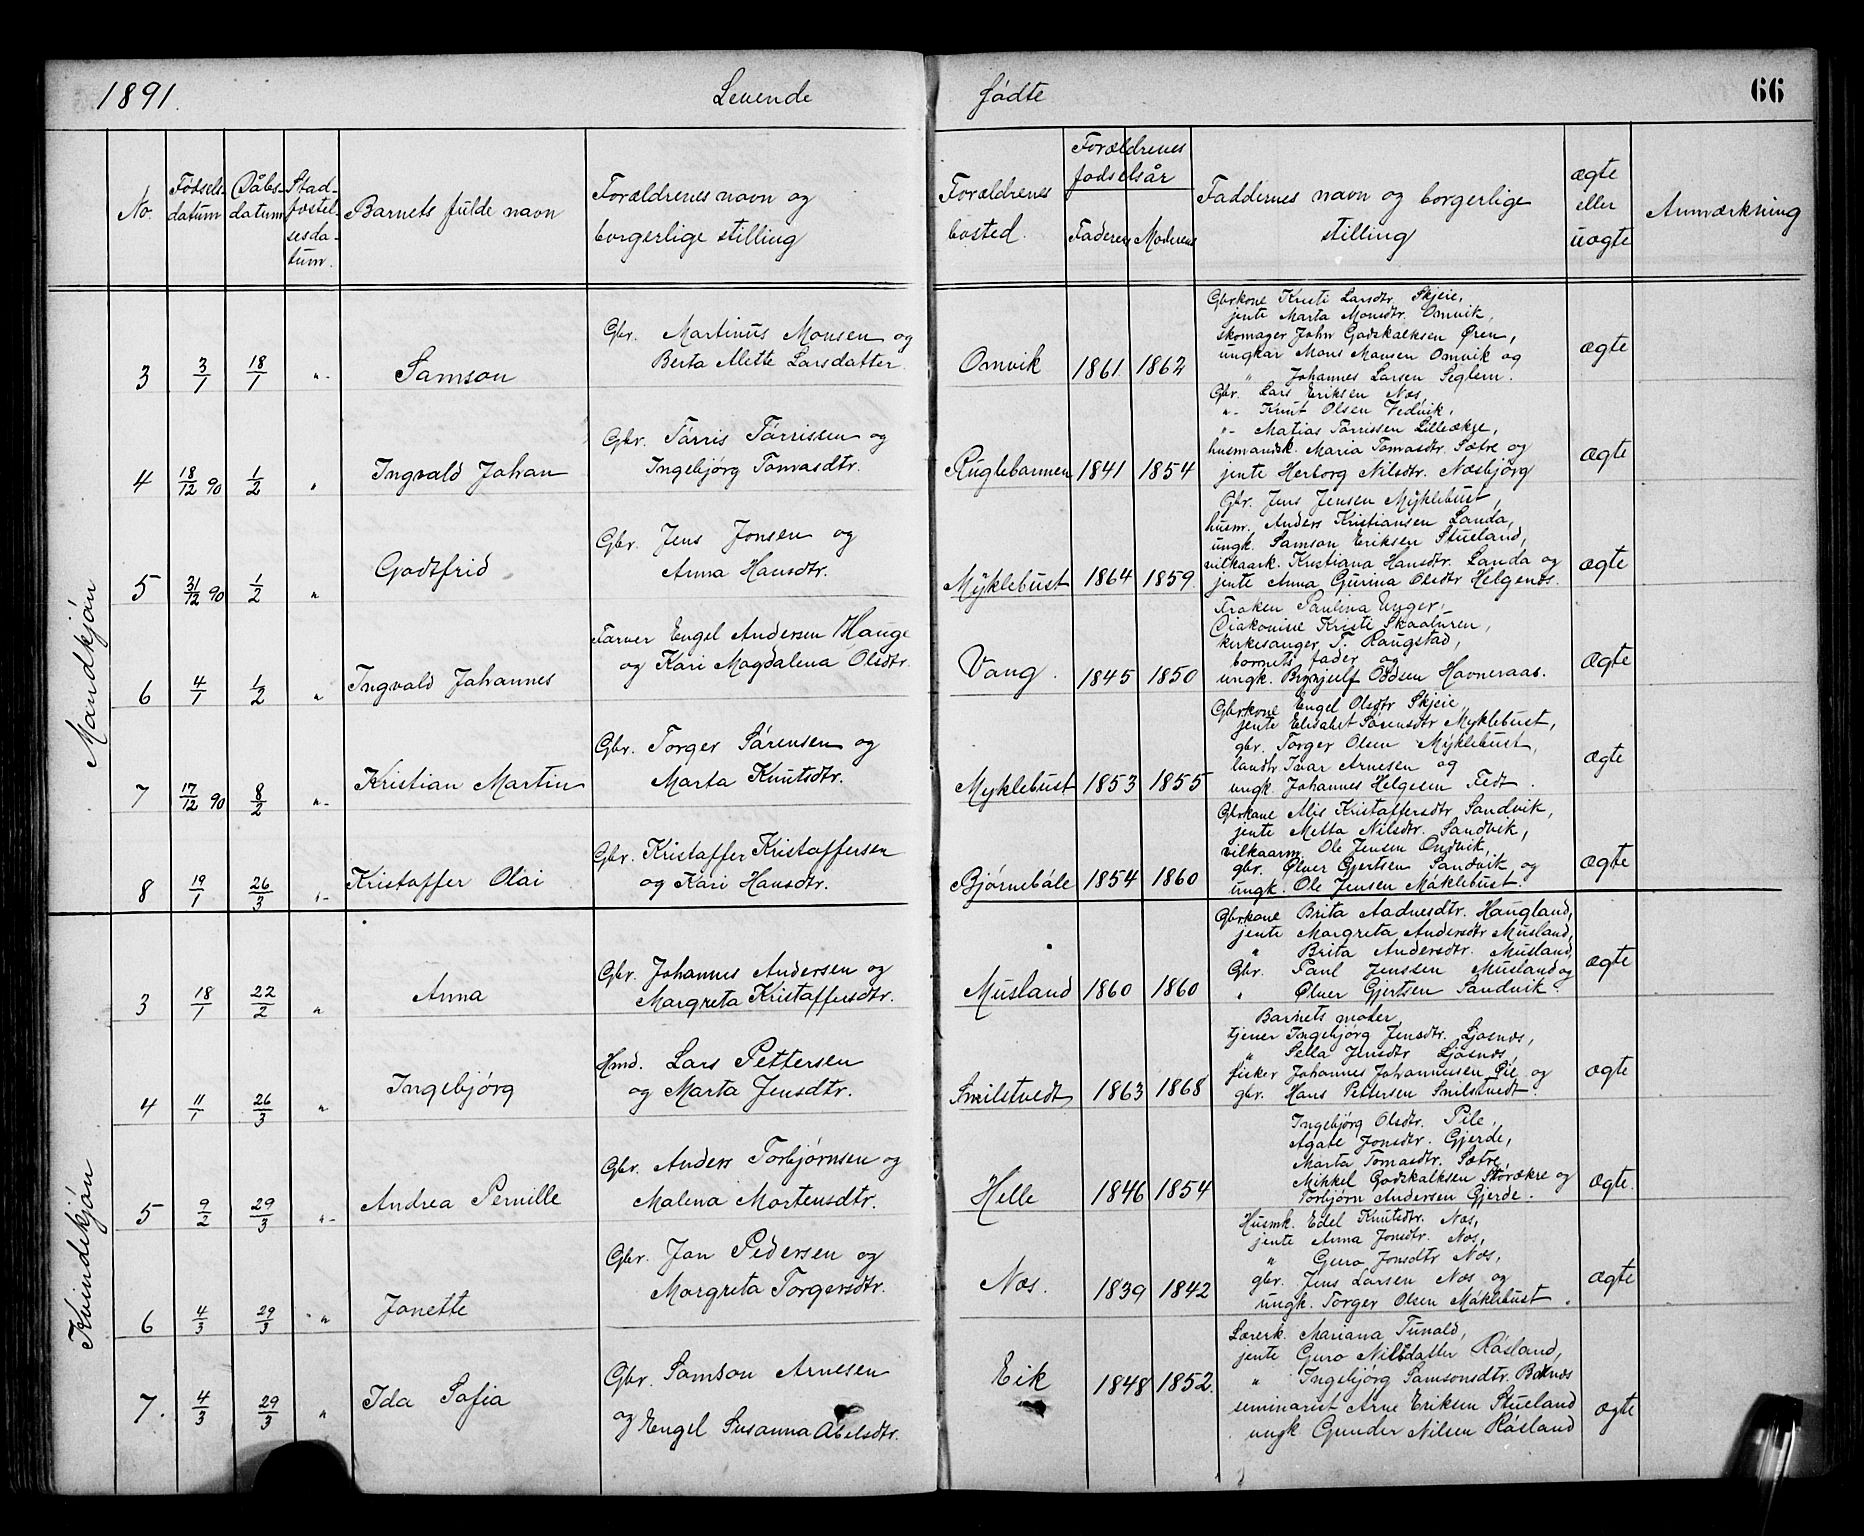 1891. Levende fødte 66
No. Fødsels-datum Dåbs-datum Stad-fæstel-sesda-tum. Barnets fulde navn Forældrenes navn og borgerlige stilling Forældrenes bosted. Forældrenes fødselsår Faderens Moderens Faddernes navn og borgerlige stilling ægte eller uægte Anmærkning
Mandkjøn
3 3/1 18/1 „- Samson
Gbr. Martinus Monsen og
Berta Mette Larsdatter.
Omvik 1861 1862
Gbrkone Kristi Larsdtr. Skjeie,
jente Marta Monsdtr. Omvik,
skomager John Godskalksen Øren,
ungkar Mons Monsen Omvik og
„ Johannes Larsen Seglem.
ægte
4 18/12 90 1/2 „ Ingvald Johan
Gbr. Tørris Tørrissen og
Ingebjørg Tomasdtr.
Ruglebarmen 1841 1854
Gbr. Lars Eriksen Næs,
„- Knut Olsen Vedvik,
„- Matias Tørrissen Lilleækre,
husmandsk. Maria Tomasdtr. Sætre og
jente Herborg Nilsdtr. Næsbjørg
ægte
5 31/12 90 1/2 „ Godtfrid
Gbr. Jens Jonsen og
Anna Hansdtr.
Myklebust 1864 1859
Gbr. Jens Jensen Myklebust,
husm. Anders Kristiansen Landa,
ungk. Samson Eriksen Stueland,
vilkaark. Kristiana Hansdtr. Landa og
jente Anna Gurina Olsdtr Helgenæs.
ægte
6 4/1 1/2 „ Ingvald Johannes
Farver Engel Andersen Hauge
og Kari Magdalena Olsdtr.
Vang. 1845 1850
Frøken Paulina Unger,
Diakonisse Kristi Skaaluren,
kirkesanger T. Raugstad,
barnets fader og
ungk. Brynjulf Oddsen Havneraas.
ægte
7 17/12 90 8/2 „- Kristian Martin
Gbr. Torger Sørensen og
Marta Knutsdtr.
Myklebust 1853 1855
Gbrkone Engel Olsdtr Skjeie,
jente Elisabet Sørensdtr Myklebust,
gbr. Torger Olsen Myklebust,
landh. Ivar Arnesen og
ungk. Johannes Helgesen Fedt.
ægte
8 19/1 26/3 „- Kristoffer Olai
Gbr. Kristoffer Kristoffersen
og Kari Hansdtr.
Bjørnebåle 1854 1860
Gbrkone Alis Kristoffersdtr Sandvik,
jente Metta Nilsdtr. Sandvik,
vilkaarm. Ole Jensen Ondvik,
gbr. Ølver Gjertsen Sandvik og
ungk. Ole Jensen Møklebust.
ægte
Kvindekjøn
3 18/1 22/2 „ Anna
Gbr. Johannes Andersen og
Margreta Kristoffersdtr.
Musland 1860 1860
Gbrkone Brita Aadnesdtr. Haugland,
jente Margreta Andersdtr Musland,
„ Brita Andersdtr. Musland,
Gbr. Paul Jenssen Musland og
„ Ølver Gjertsen Sandvik.
ægte
4 11/1 26/3 „ Ingebjørg
Hmd. Lars Pettersen
og Marta Jensdtr.
Smilstvedt 1863 1868
Barnets moder,
tjener Ingebjørg Jensdtr. Ljosnæs,
„ Sella Jensdtr Ljosnæs,
fisker Johannes Johannessen Pie og
gbr. Hans Pettersen Smilstvedt.
ægte
5 9/2 29/3 „- Andrea Pernille
Gbr. Anders Torbjørnsen og
Malena Mortensdtr.
Helle 1846 1854
Ingebjørg Olsdtr. Pile,
Agate Jonsdtr. Gjerde,
Marta Tomasdtr. Sætre,
Mikkel Godskalksen Storækre og
Torbjørn Andersen Gjerde.
ægte.
6 4/3 29/3 „ Jonette
Gbr. Jon Pedersen og
Margreta Torgersdtr.
Næs. 1839 1842
Husmk. Edel Knutsdtr. Næs,
jente Anna Jonsdtr. Næs,
„ Guro Jonsdtr Næs,
gbr. Jens Larsen Næs og
ungk. Torger Olsen Møklebust.
ægte
7. 4/3 29/3 „ Ida Sofia
Gbr. Samson Arnesen
og Engel Susanna Abelsdtr.
Eik 1848 1852.
Lærerk. Mariana Tunald,
jente Guro Nilsdatter Røsland,
„ Ingebjørg Samsonsdtr.
seminarist Arne Eriksen Stueland
ungk Gunder Nilsen Røsland
ægte